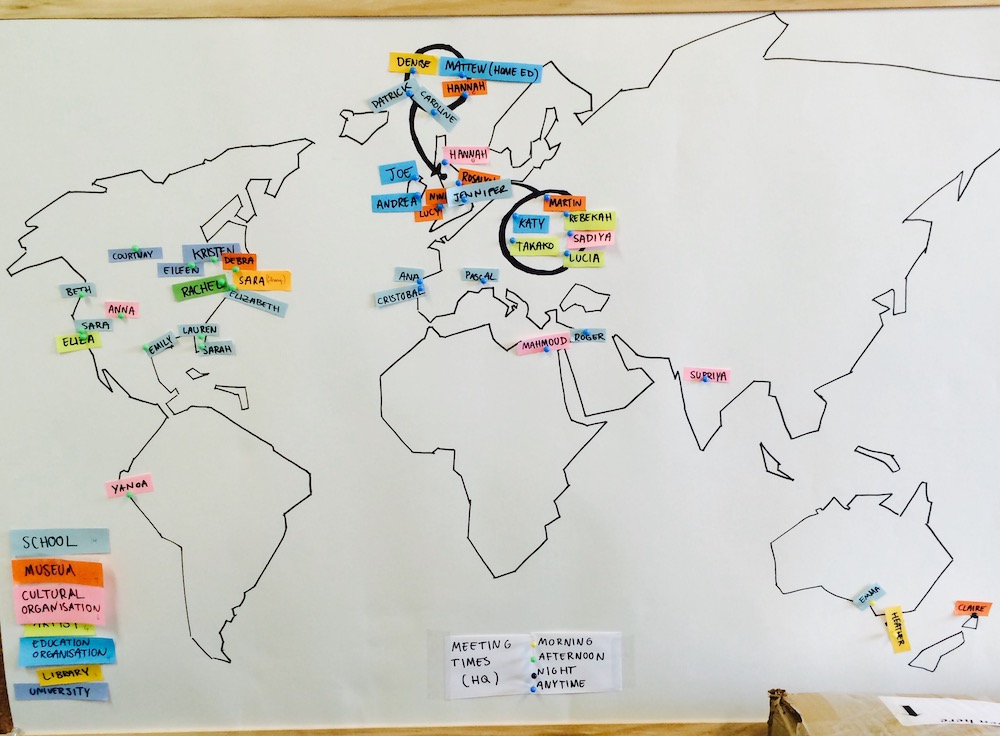 DENISE
MATTEW (HOME ED)
HANNAH
PATRICK
CAROLINE
HANNAH
JOE
JENNIFER
ANDREA
LUCY
MARTIN
KATY
REBEKAH
TAKAKO
SADIYA
LUCIA
COURTNAY
KRISTEN
DEBRA
EILEEN
RACHEL
SARA
ELIZABETH
BETH
ANNA
SARA
ELIZA
EMILY
LAUREN
SARAH
ANA
CRISTOBAL
PASCAL
MAHMOUD
ROGER
SUPRIYA
YANOA
EMMA
HEATHER
CLAIRE
SCHOOL
MUSEUM
CULTURAL
ORGANISATION
ARTIST
EDUCATION
ORGANISATION
LIBRARY
UNIVERSITY
MEETING
TIMES
(HQ)
MORNING
AFTERNOON
NIGHT
ANYTIME